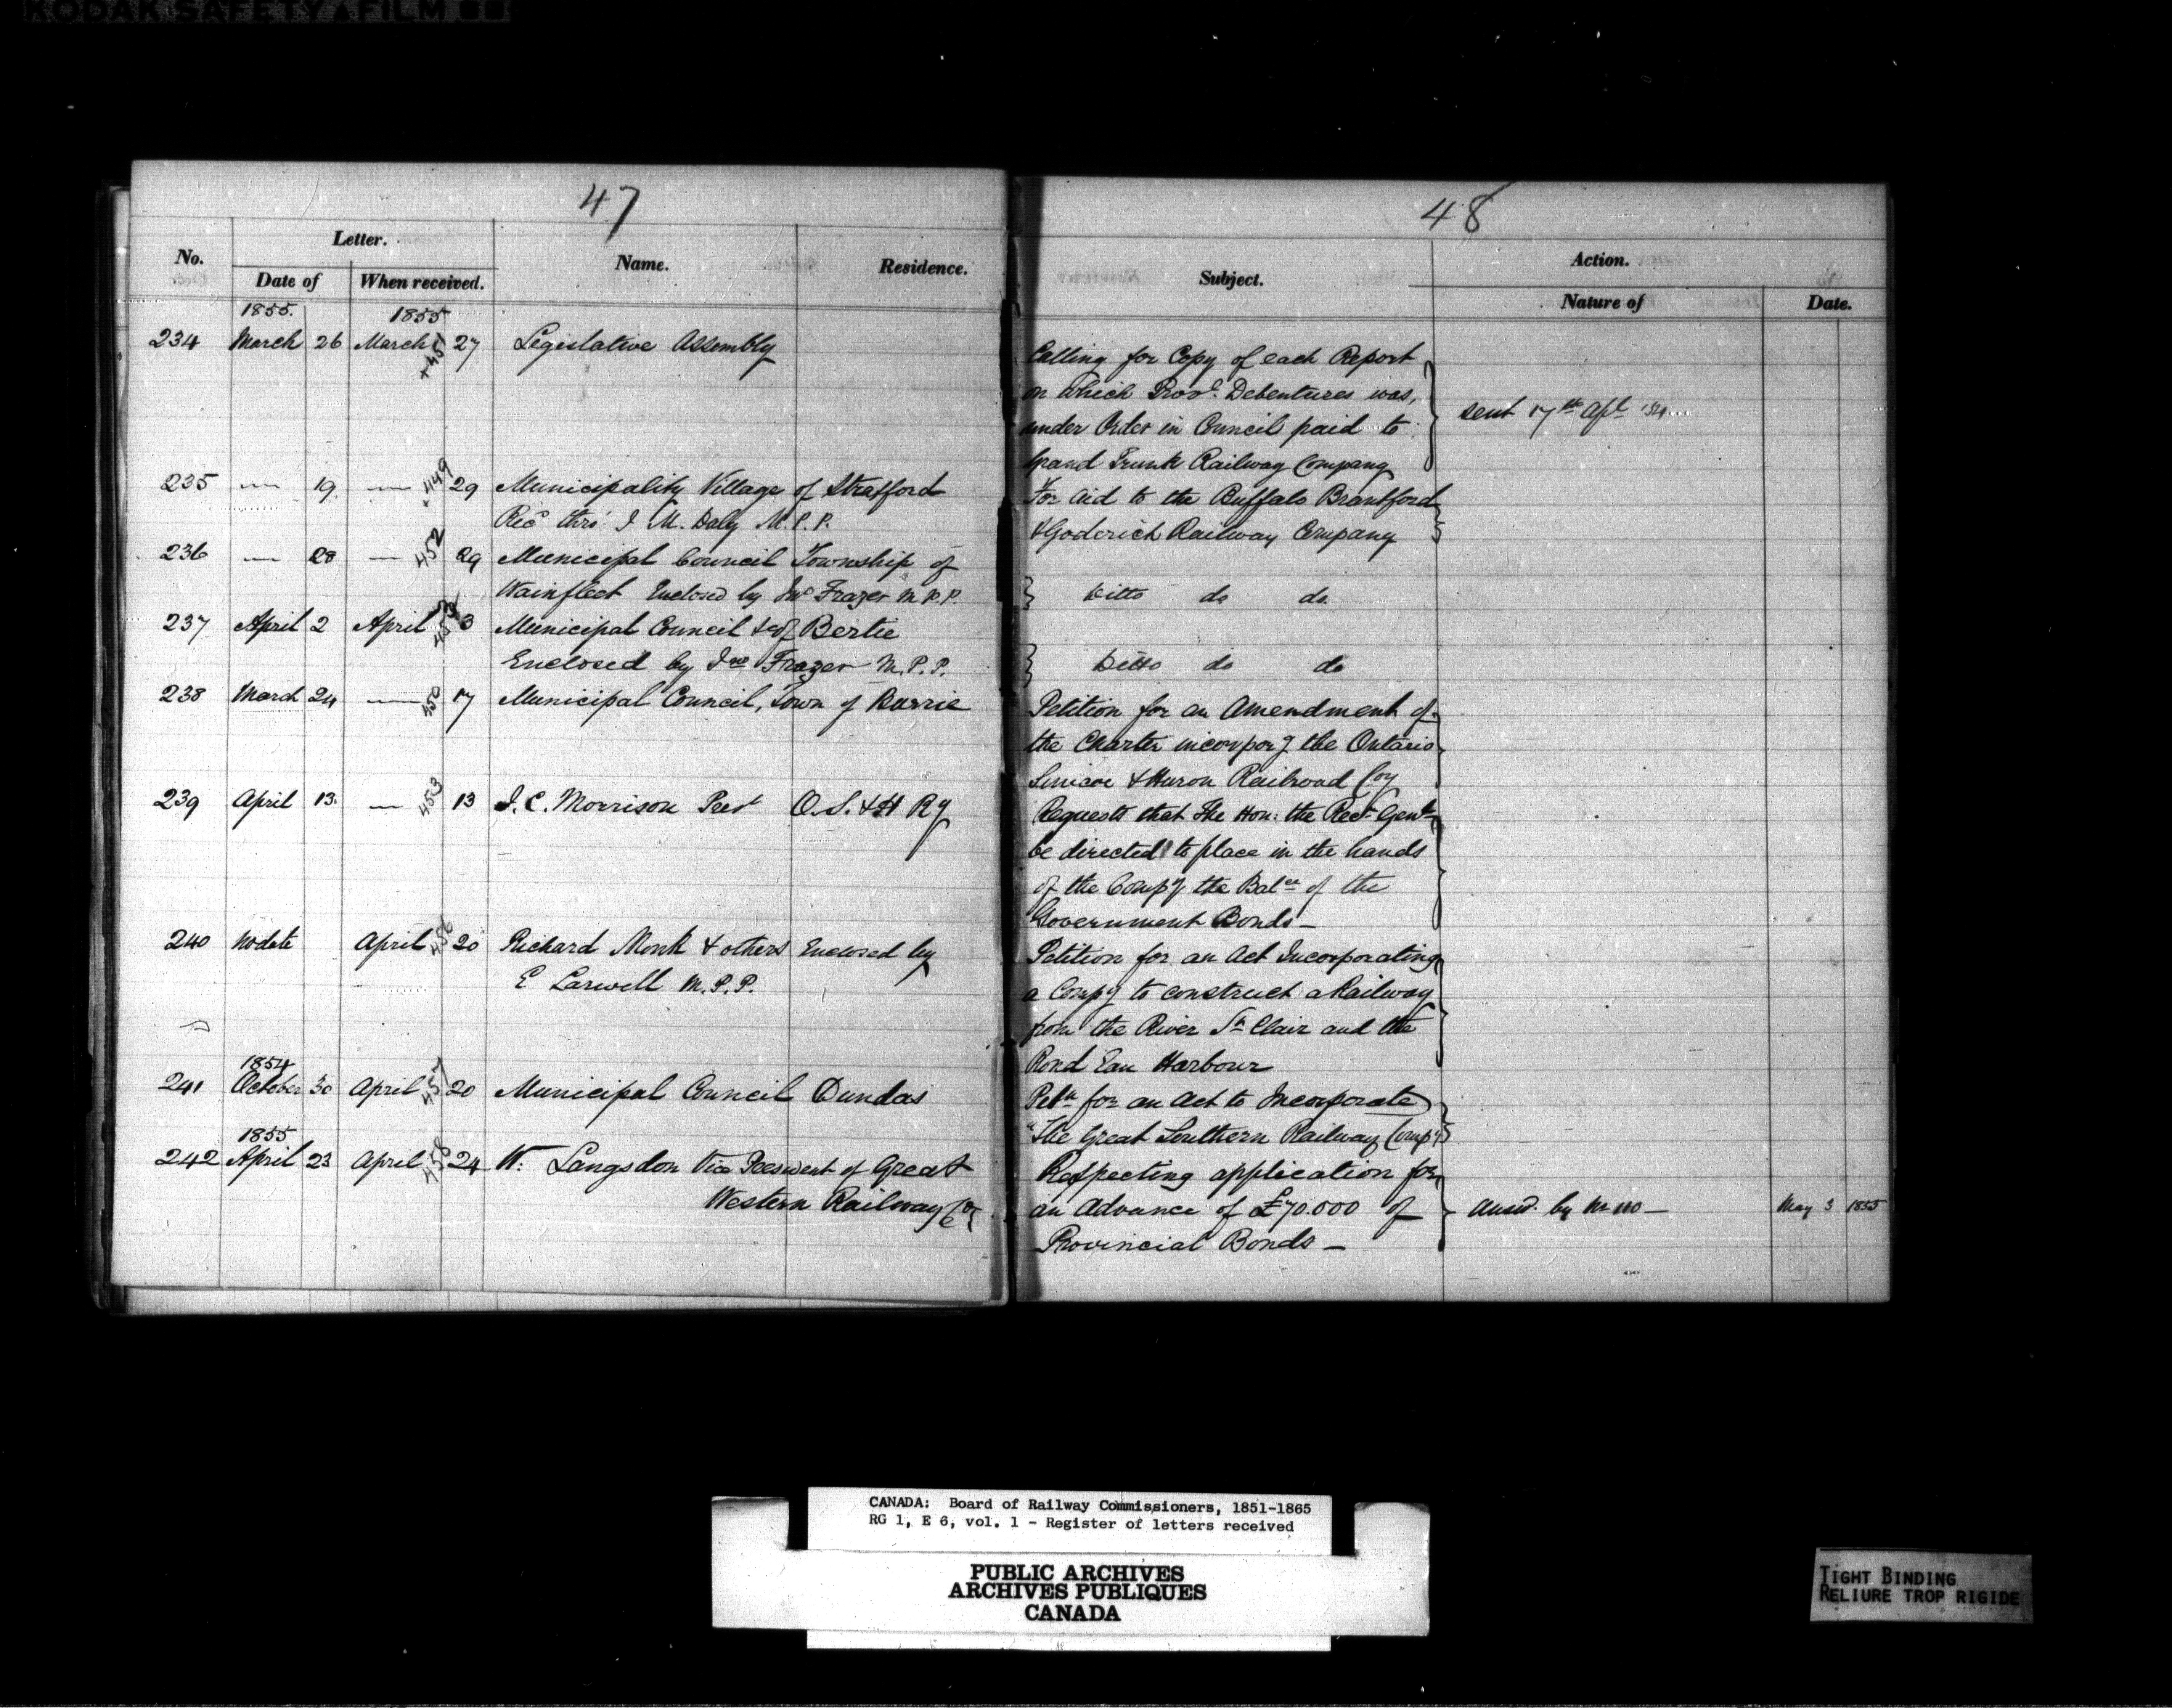 KODAK SAFETY FILM
47
No.
Letter.
Name.
Residence.
Date of
When received.
1855.
1855
234 March 26 March 27 Legislative Assembly
+451
235 — 19 — 449 29 Municipality Village of Stratford
Recd thro' J M. Daly M.P.P.
236 — 28 — 452 29 Municipal Council Township of
Wainfleet Enclosed by Jno Frazer M.P.P.
237 April 2 April 3 Municipal Council of Bertie
Enclosed by Jno Frazer M.P.P.
238 March 24 — 450 17 Municipal Council, Town of Barrie
239 April 13. — 453 13 J. C. Morrison Prest O. S. & H Ry
240 no date April 456 20 Richard Monk & others Enclosed by
E Larwell M.P.P.
1854
241 October 30 April 457 20 Municipal Council Dundas
1855
242 April 23 April 458 24 W: Langsdon Vice President of Great
Western Railway Co
48
Subject.
Action.
Nature of
Date.
Calling for Copy of each Report
on which Provl. Debentures was,
under Order in Council paid to
Grand Trunk Railway Company
sent 17th Apl '54
For aid to the Buffalo Brantford
& Goderich Railway Company
Ditto do do.
Ditto do do
Petition for an Amendment of
the Charter incorporg the Ontario
Simcoe & Huron Railroad Coy
Requests that The Hon: the Recr Genl
be directed to place in the hands
of the Compy the Balce of the
Government Bonds —
Petition for an Act Incorporating
a Compy to construct a Railway
from the River St Clair and the
Rond Eau Harbour
Petn for an Act to Incorporate
"The Great Southern Railway Compy"
Respecting application for
an Advance of £70.000 of
Provincial Bonds —
answd. by No 110 — May 3 1855
CANADA: Board of Railway Commissioners, 1851-1865
RG 1, E 6, vol. 1 - Register of letters received
PUBLIC ARCHIVES
ARCHIVES PUBLIQUES
CANADA
TIGHT BINDING
RELIURE TROP RIGIDE